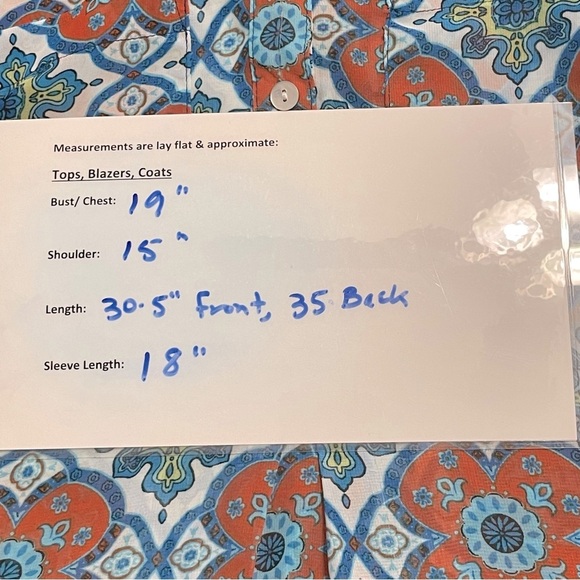 Measurements are lay flat & approximate:
Tops, Blazers, Coats
Bust/ Chest: 19"
Shoulder: 15"
Length: 30.5" Front, 35 Back
Sleeve Length: 18"